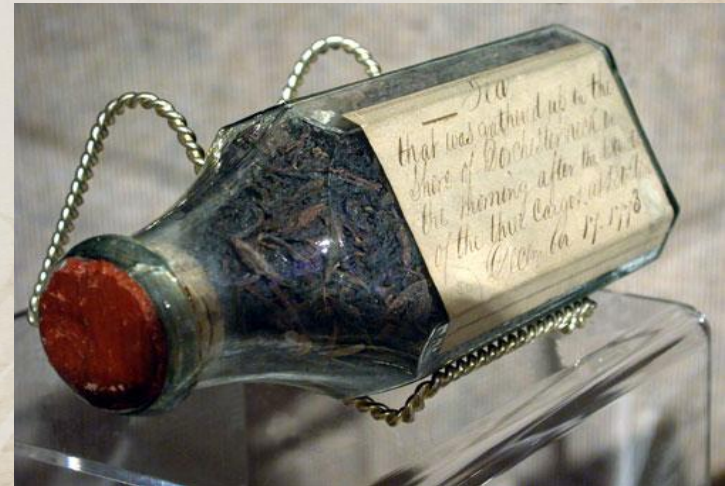 Tea
that was gathered up on the
Shore of Dorchester Neck on
the morning after the
of the three Cargos at
December 17. 1773